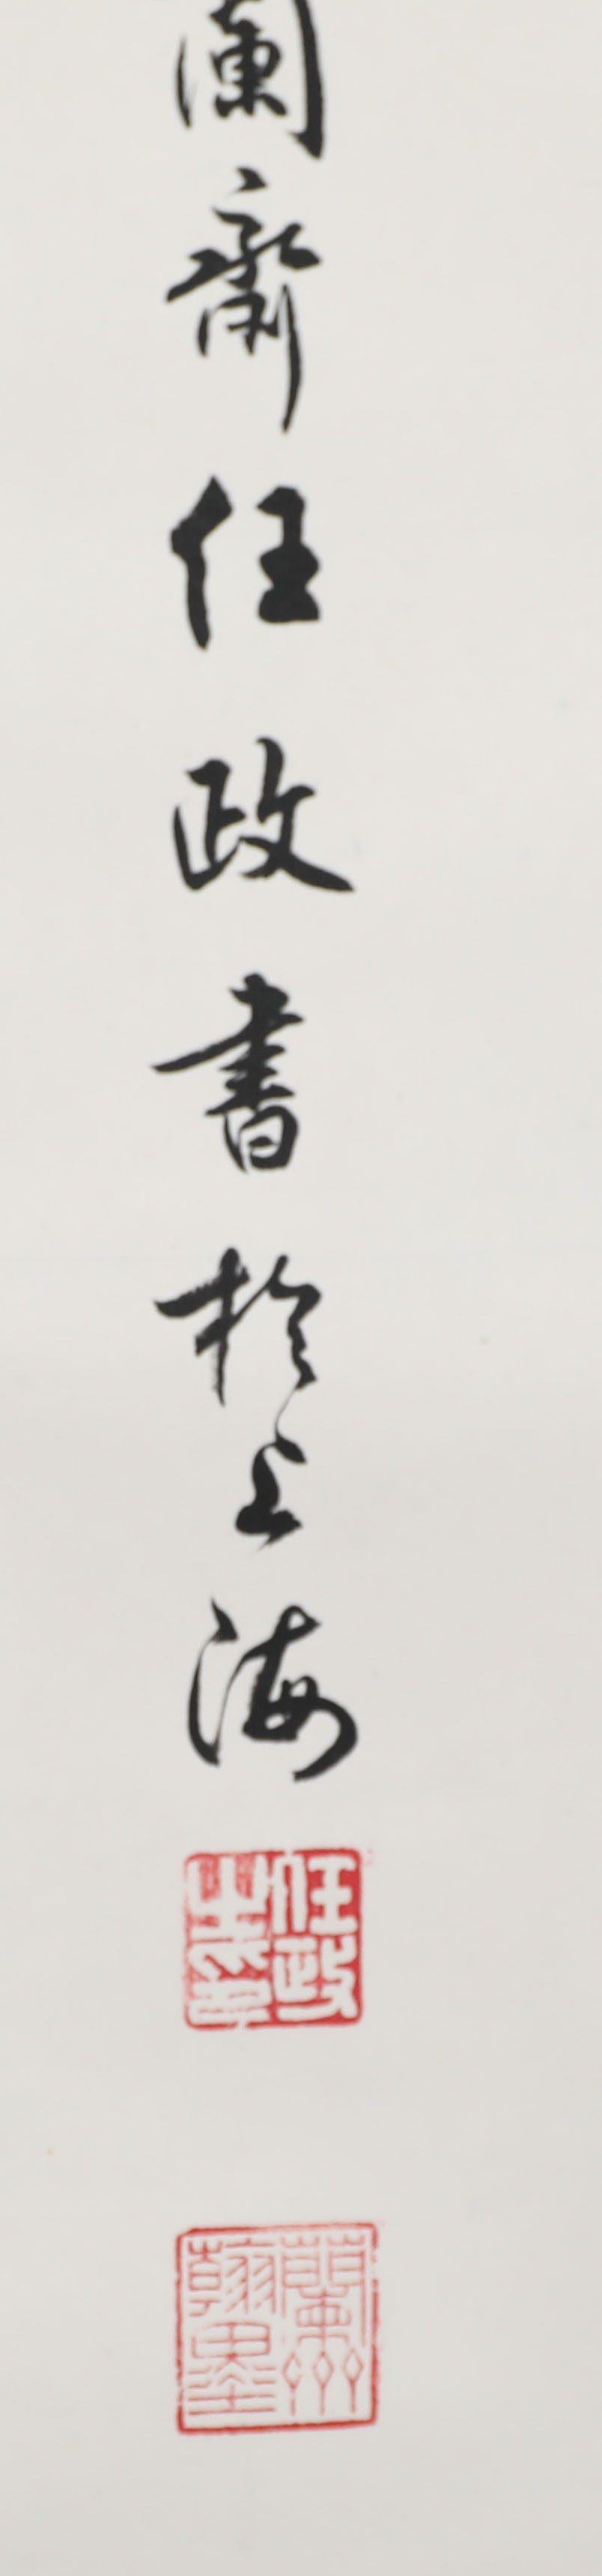 蘭齋任政書於上海
任政
蘭齋翰墨